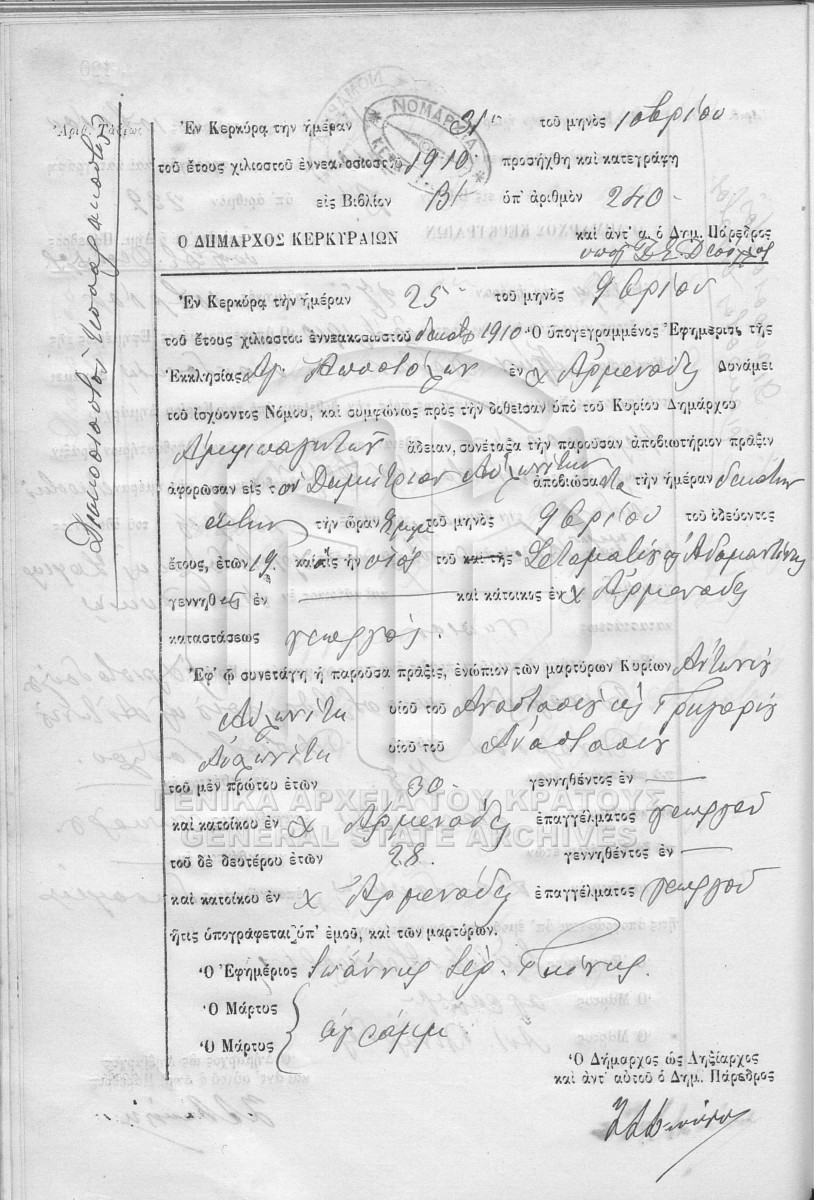 Ἀριθ. Τάξεως
Ἐν Κερκύρᾳ τὴν ἡμέραν 31 τοῦ μηνὸς 10βρίου
τοῦ ἔτους χιλιοστοῦ ἐννεακοσιοστοῦ 1910 προσήχθη καὶ κατεγράφη
εἰς Βιβλίον Β' ὑπ' ἀριθμὸν 240
Ο ΔΗΜΑΡΧΟΣ ΚΕΡΚΥΡΑΙΩΝ καὶ ἀντ' α. ὁ Δημ. Πάρεδρος
ΝΟΜΑΡΧΙΑ
Ἐν Κερκύρᾳ τὴν ἡμέραν 25 τοῦ μηνὸς 9βρίου
τοῦ ἔτους χιλιοστοῦ ἐννεακοσιοστοῦ δεκάτου 1910 Ὁ ὑπογεγραμμένος Ἐφημέριος τῆς
Ἐκκλησίας Ἁγ. Ἀποστόλων ἐν χ Ἀρμενάδες Δυνάμει
τοῦ ἰσχύοντος Νόμου, καὶ συμφώνως πρὸς τὴν δοθεῖσαν ὑπὸ τοῦ Κυρίου Δημάρχου
Ἀμφιπαγιτῶν ἄδειαν, συνέταξα τὴν παροῦσαν ἀποβιωτήριον πρᾶξιν
ἀφορῶσαν εἰς τὸν Δημήτριον Αὐλωνίτην ἀποβιώσαντα τὴν ἡμέραν δεκάτην
ἕκτην τὴν ὥραν τοῦ μηνὸς 9βρίου τοῦ ὁδεύοντος
ἔτους, ἐτῶν 19 καὶ εἰς ἣν υἱὸς τοῦ καὶ τῆς Σταματίου Ἀδαμαντίνης
γεννηθεὶς ἐν καὶ κάτοικος ἐν χ Ἀρμενάδες
καταστάσεως γεωργός.
Ἐφ' ᾧ συνετάγη ἡ παροῦσα πρᾶξις, ἐνώπιον τῶν μαρτύρων Κυρίων Ἀντωνίου
Αὐλωνίτη υἱοῦ τοῦ Ἀναστασίου καὶ Γρηγορίου
Αὐλωνίτη υἱοῦ τοῦ Ἀναστασίου
τοῦ μὲν πρώτου ἐτῶν 30 γεννηθέντος ἐν
καὶ κατοίκου ἐν χ Ἀρμενάδες ἐπαγγέλματος γεωργοῦ
τοῦ δὲ δευτέρου ἐτῶν 28 γεννηθέντος ἐν
καὶ κατοίκου ἐν χ Ἀρμενάδες ἐπαγγέλματος γεωργοῦ
ἥτις ὑπογράφεται ὑπ' ἐμοῦ, καὶ τῶν μαρτύρων.
Ὁ Ἐφημέριος Ἰωάννης Ἱερ.
Ὁ Μάρτυς
Ὁ Μάρτυς ἀγράμμ
Ὁ Δήμαρχος ὡς Ληξίαρχος
καὶ ἀντ' αὐτοῦ ὁ Δημ. Πάρεδρος
ΓΕΝΙΚΑ ΑΡΧΕΙΑ ΤΟΥ ΚΡΑΤΟΥΣ
GENERAL STATE ARCHIVES